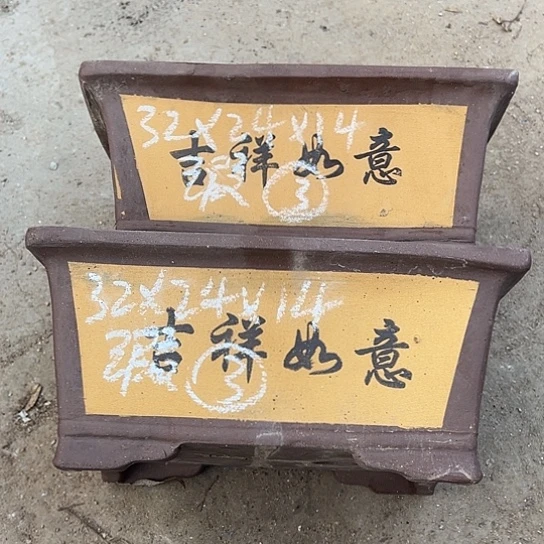 32×24×14
吉祥如意
3
32×24×14
吉祥如意
3